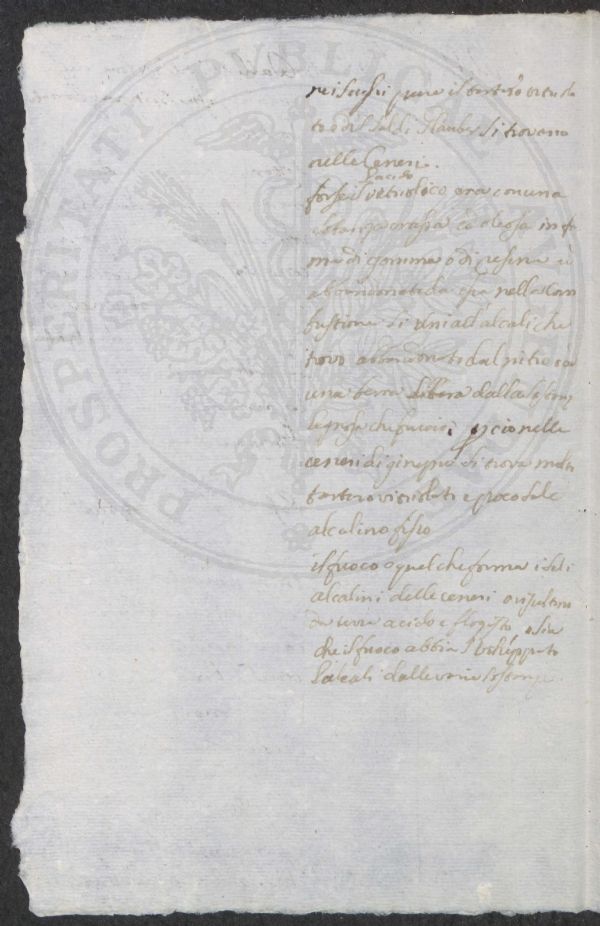 PROSPERITATI PUBLICAE
pure il tartaro vitriola
to ed il Sal di Glauber si trovano
nelle Ceneri.
l'acido
forse il vitriolico era con una
sostanza crassa ed oleosa in for
ma di gomma o di resina ed
abbandonato da essa nella com
bustione si unì all'alcali che
trovò abbandonato dal nitro od a
una terra libera dalla
che perciò nelle
ceneri di ginepro si trova molto
tartaro vitriolato e poco sale
alcalino fisso
il fuoco è quel che forma i sali
alcalini delle ceneri o risultino
da terra acido e flogisto o sia
che il fuoco abbia sviluppato
l'alcali dalle varie sostanze